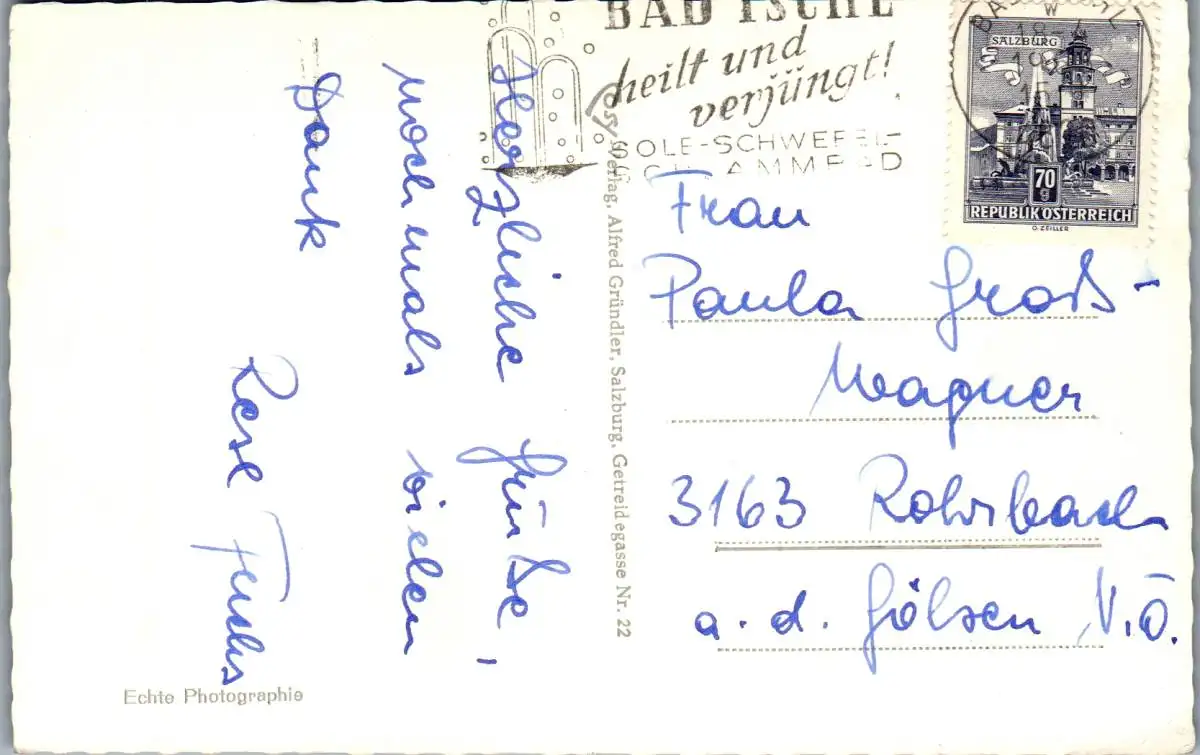 BAD ISCHL
heilt und
verjüngt!
SOLE-SCHWEFEL-
SALZBURG
70
g
REPUBLIK ÖSTERREICH
O. ZEILLER
Herzliche Grüße,
nochmals vielen
Dank
Rese Fuchs
Verlag, Alfred Gründler, Salzburg, Getreidegasse Nr. 22
Frau
Paula Groß-
Wagner
3163 Rohrbach
a. d. Gölsen N.Ö.
Echte Photographie